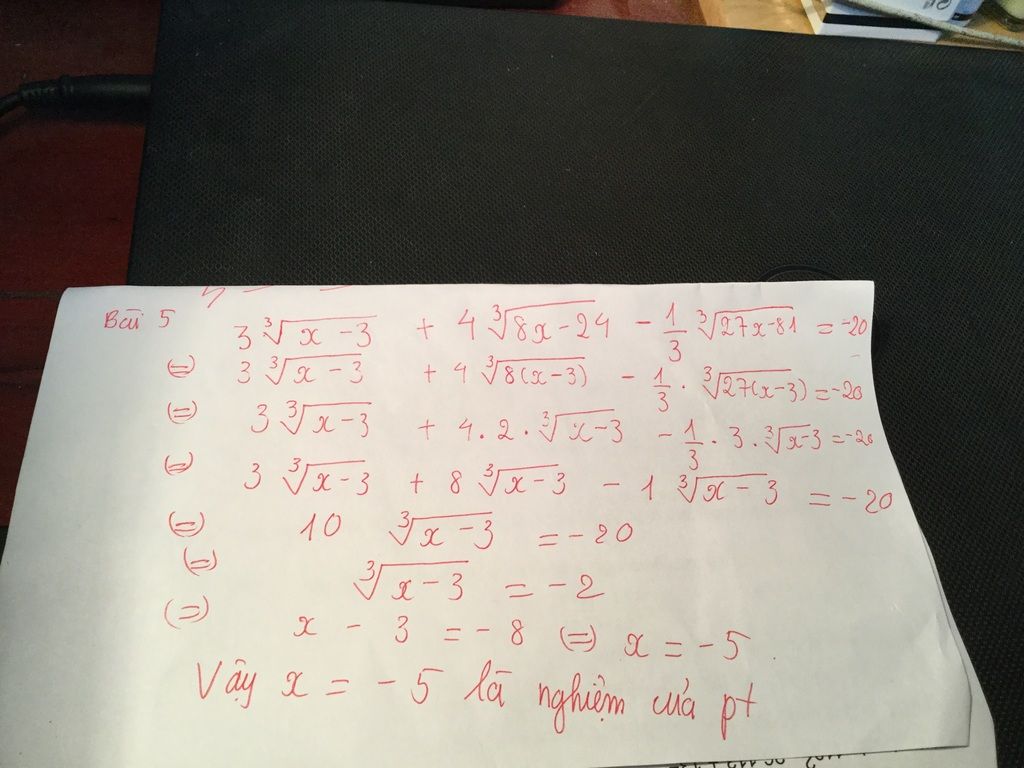 Bài 5 3∛(x-3) + 4∛(8x-24) - 1/3 ∛(27x-81) = -20
(=) 3∛(x-3) + 4∛(8(x-3)) - 1/3 . ∛(27(x-3)) = -20
(=) 3∛(x-3) + 4.2.∛(x-3) - 1/3 . 3.∛(x-3) = -20
(=) 3∛(x-3) + 8∛(x-3) - 1∛(x-3) = -20
(=) 10 ∛(x-3) = -20
(=) ∛(x-3) = -2
(=) x - 3 = -8 (=) x = -5
Vậy x = -5 là nghiệm của pt